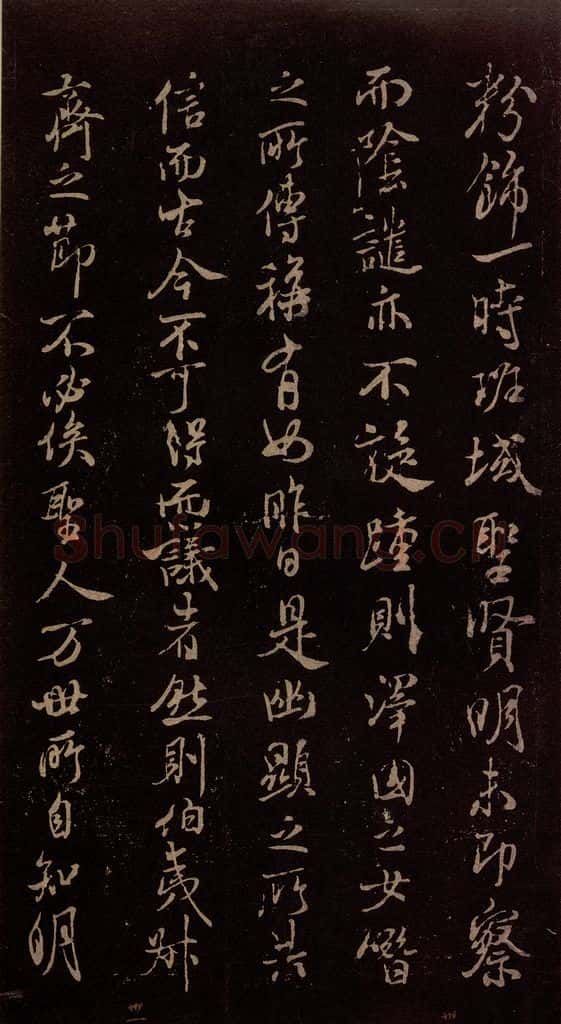 粉飾一時班域聖賢明未即察
而陰譴亦不旋踵則澤國之女
之所傳稱有如昨日是幽顯之所共
信而古今不可得而議者然則伯夷叔
齊之節不必俟聖人万世所自知明
shufawang.cn